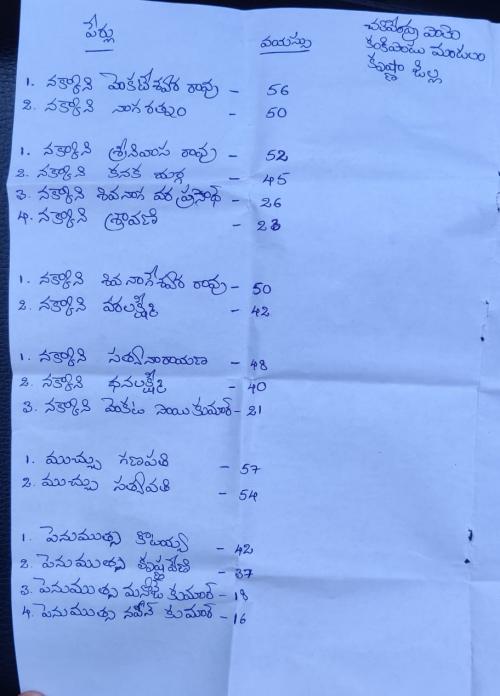 పేర్లు
వయస్సు
కంకిపాడు మండలం
కృష్ణా జిల్లా
1. నక్కోని వెంకటేశ్వర రావు - 56
2. నక్కోని నాగరత్నం - 50
1. నక్కోని శ్రీనివాస రావు - 52
2. నక్కోని కనక దుర్గ - 45
3. నక్కోని శివనాగ వర ప్రసాద్ - 26
4. నక్కోని శ్రావణి - 23
1. నక్కోని శివ నాగేశ్వర రావు - 50
2. నక్కోని వరలక్ష్మి - 42
1. నక్కోని సత్యనారాయణ - 48
2. నక్కోని ధనలక్ష్మి - 40
3. నక్కోని వెంకట సాయి కుమార్ - 21
1. ముచ్చు గణపతి - 57
2. ముచ్చు సత్యవతి - 54
1. పెనుముత్స కోటయ్య - 42
2. పెనుముత్స కృష్ణవేణి - 37
3. పెనుముత్స మనోజ్ కుమార్ - 18
4. పెనుముత్స నవీన్ కుమార్ - 16